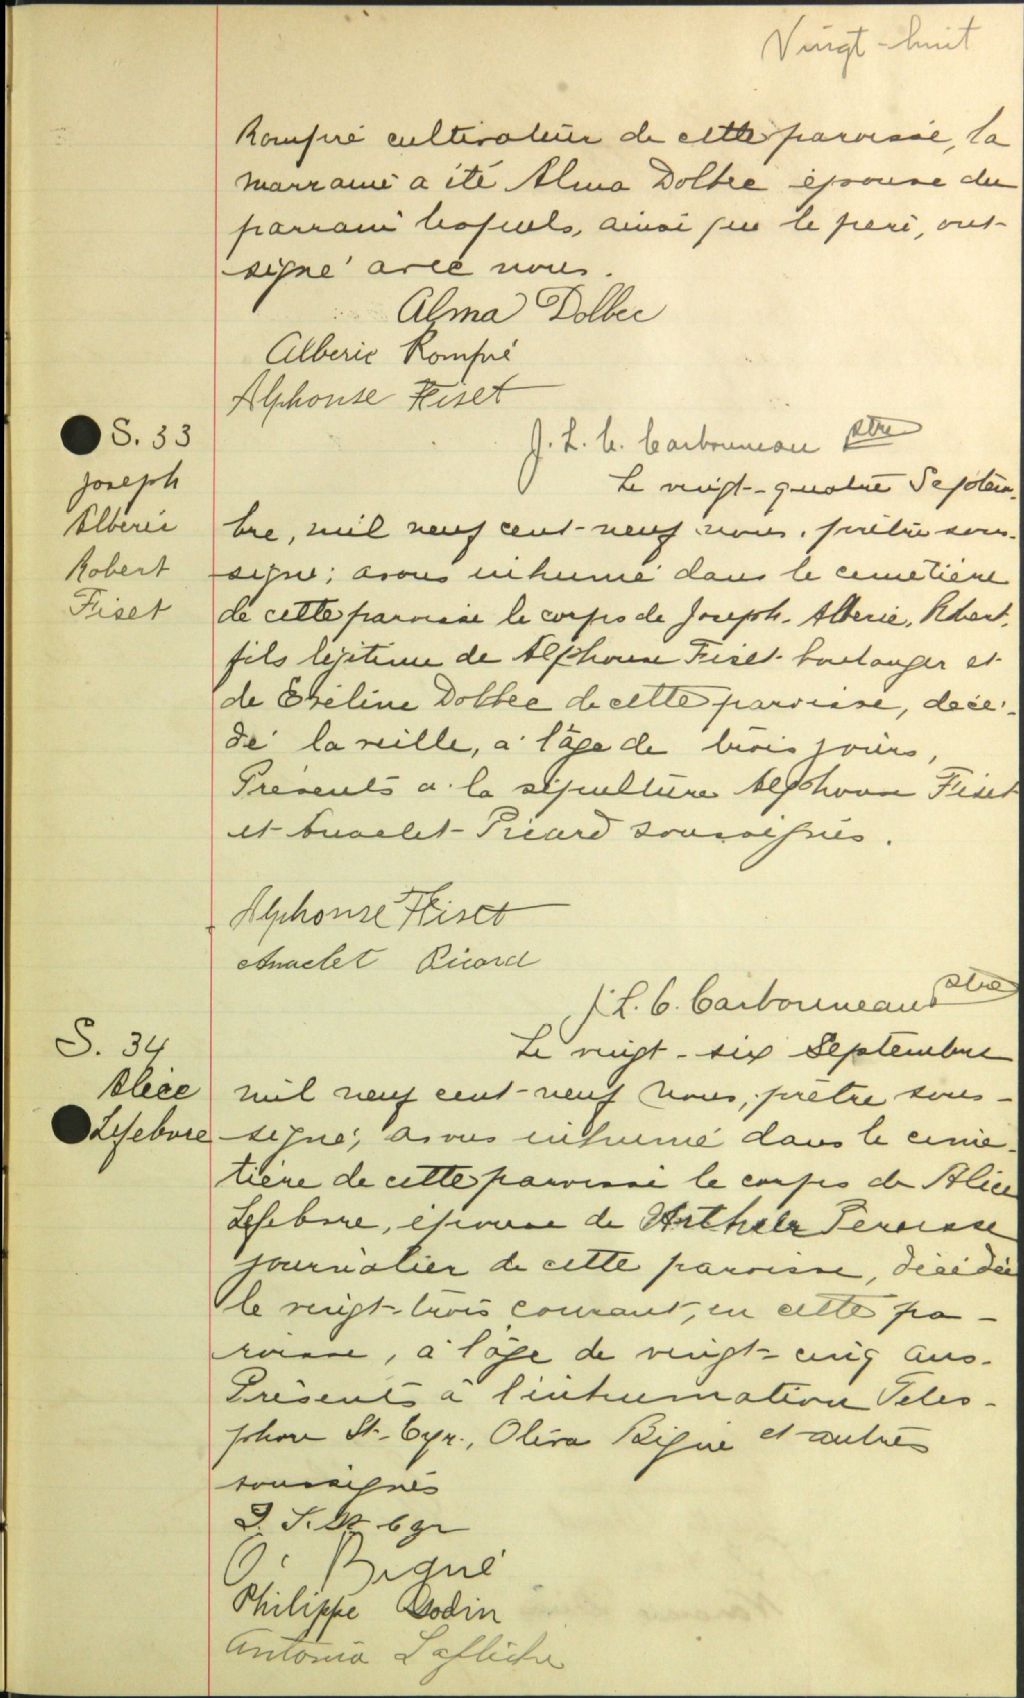 Vingt-huit
Rompré cultivateur de cette paroisse, la
marraine a été Alma Dolbec épouse du
parrain lesquels, ainsi que le père, ont
signé avec nous.
Alma Dolbec
Alberic Rompré
Alphonse Fiset
J. L. C. Carbonneau ptre
S. 33
Joseph
Alberic
Robert
Fiset
Le vingt-quatre Septem-
bre, mil neuf cent-neuf nous, prêtre sous-
signé; avons inhumé dans le cimetière
de cette paroisse le corps de Joseph-Alberic-Robert,
fils légitime de Alphonse Fiset boulanger et
de Eveline Dolbec de cette paroisse, décé-
dé la veille, à l'âge de trois jours,
Présents à la sépulture Alphonse Fiset
et Anaclet Picard soussignés.
Alphonse Fiset
Anaclet Picard
J. L. C. Carbonneau ptre
S. 34
Alice
Lefebvre
Le vingt-six Septembre
mil neuf cent-neuf nous, prêtre sous-
signé, avons inhumé dans le cime-
tière de cette paroisse le corps de Alice
Lefebvre, épouse de Arthur Perusse
journalier de cette paroisse, décédée
le vingt-trois courant, en cette pa-
roisse, à l'âge de vingt-cinq ans.
Présents à l'inhumation Teles-
phore St-Cyr, Oliva Bigué et autres
soussignés
St Cyr
O. Bigué
Philippe Godin
Antonia Laflèche